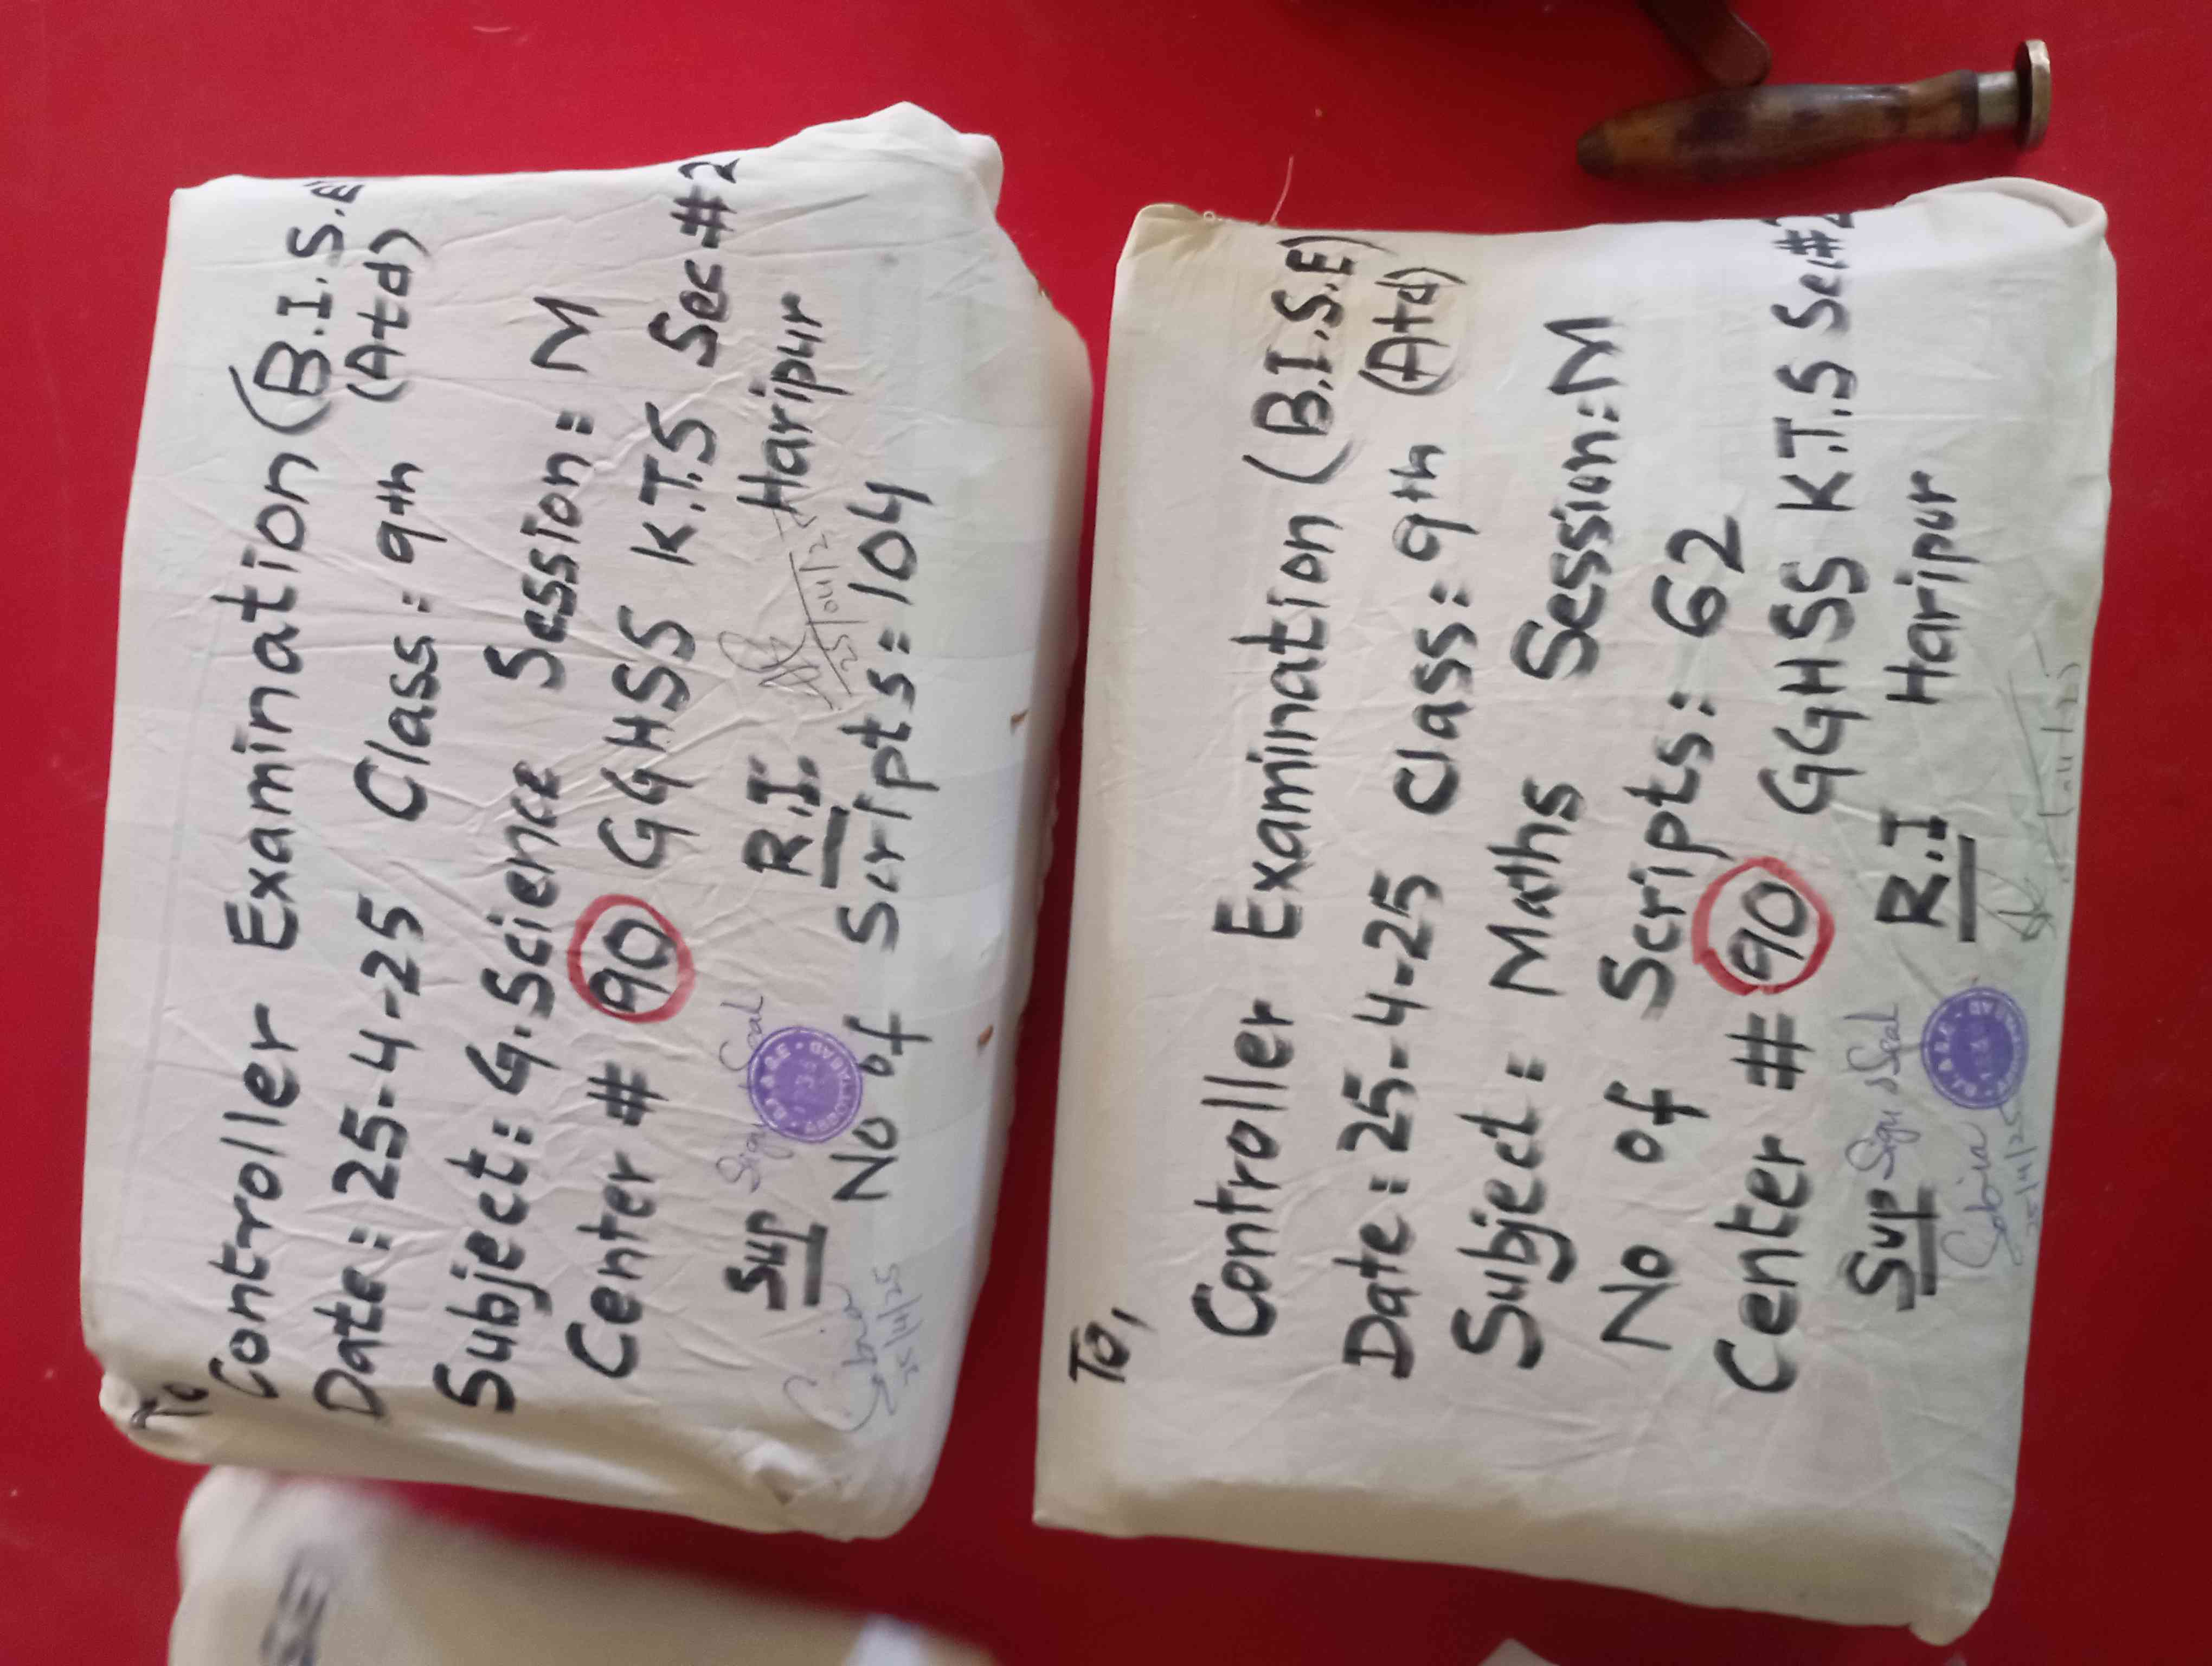 To
Controller Examination (B.I.S.E
Date: 25-4-25 Class: 9th (Atd)
Subject: G.Science Session: M
Center # 90 GGHSS K.T.S Sec#2
Haripur
Sup Sign Seal R.I.
25/4/25 25/04/25
No of Scripts: 104
To,
Controller Examination (B.I.S.E)
Date: 25-4-25 Class: 9th (Atd)
Subject: Maths Session: M
No of Scripts: 62
Center # 90 GGHSS K.T.S Sec#2
Haripur
Sup Sign, Seal R.I
25/4/25